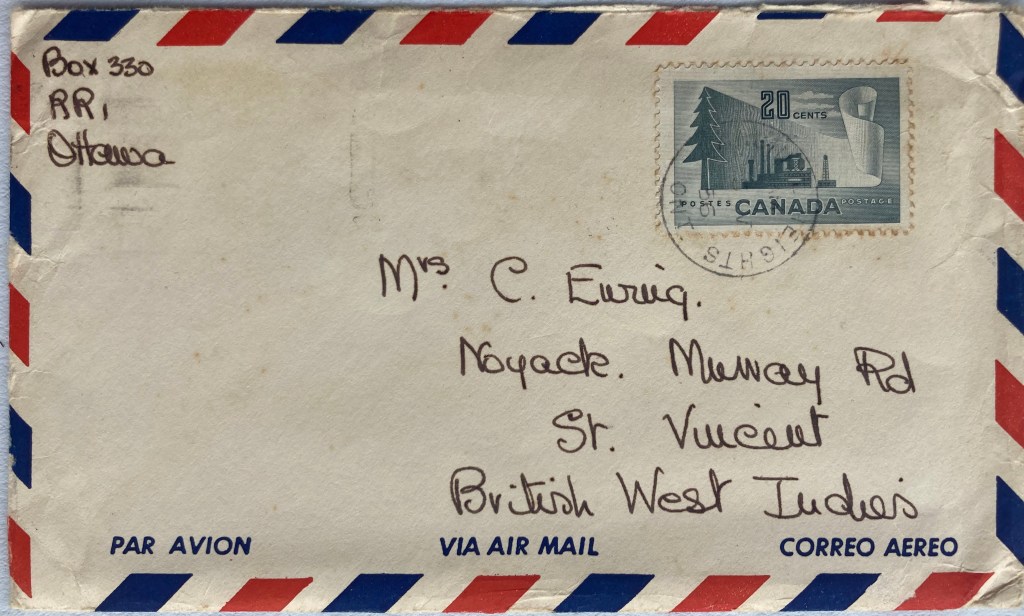 Box 330
RR1
Ottawa
20 CENTS
POSTES CANADA POSTAGE
EIGHTS ONT.
Mrs. C.
Noyack. Murray Rd
St. Vincent
British West Indies
PAR AVION
VIA AIR MAIL
CORREO AEREO